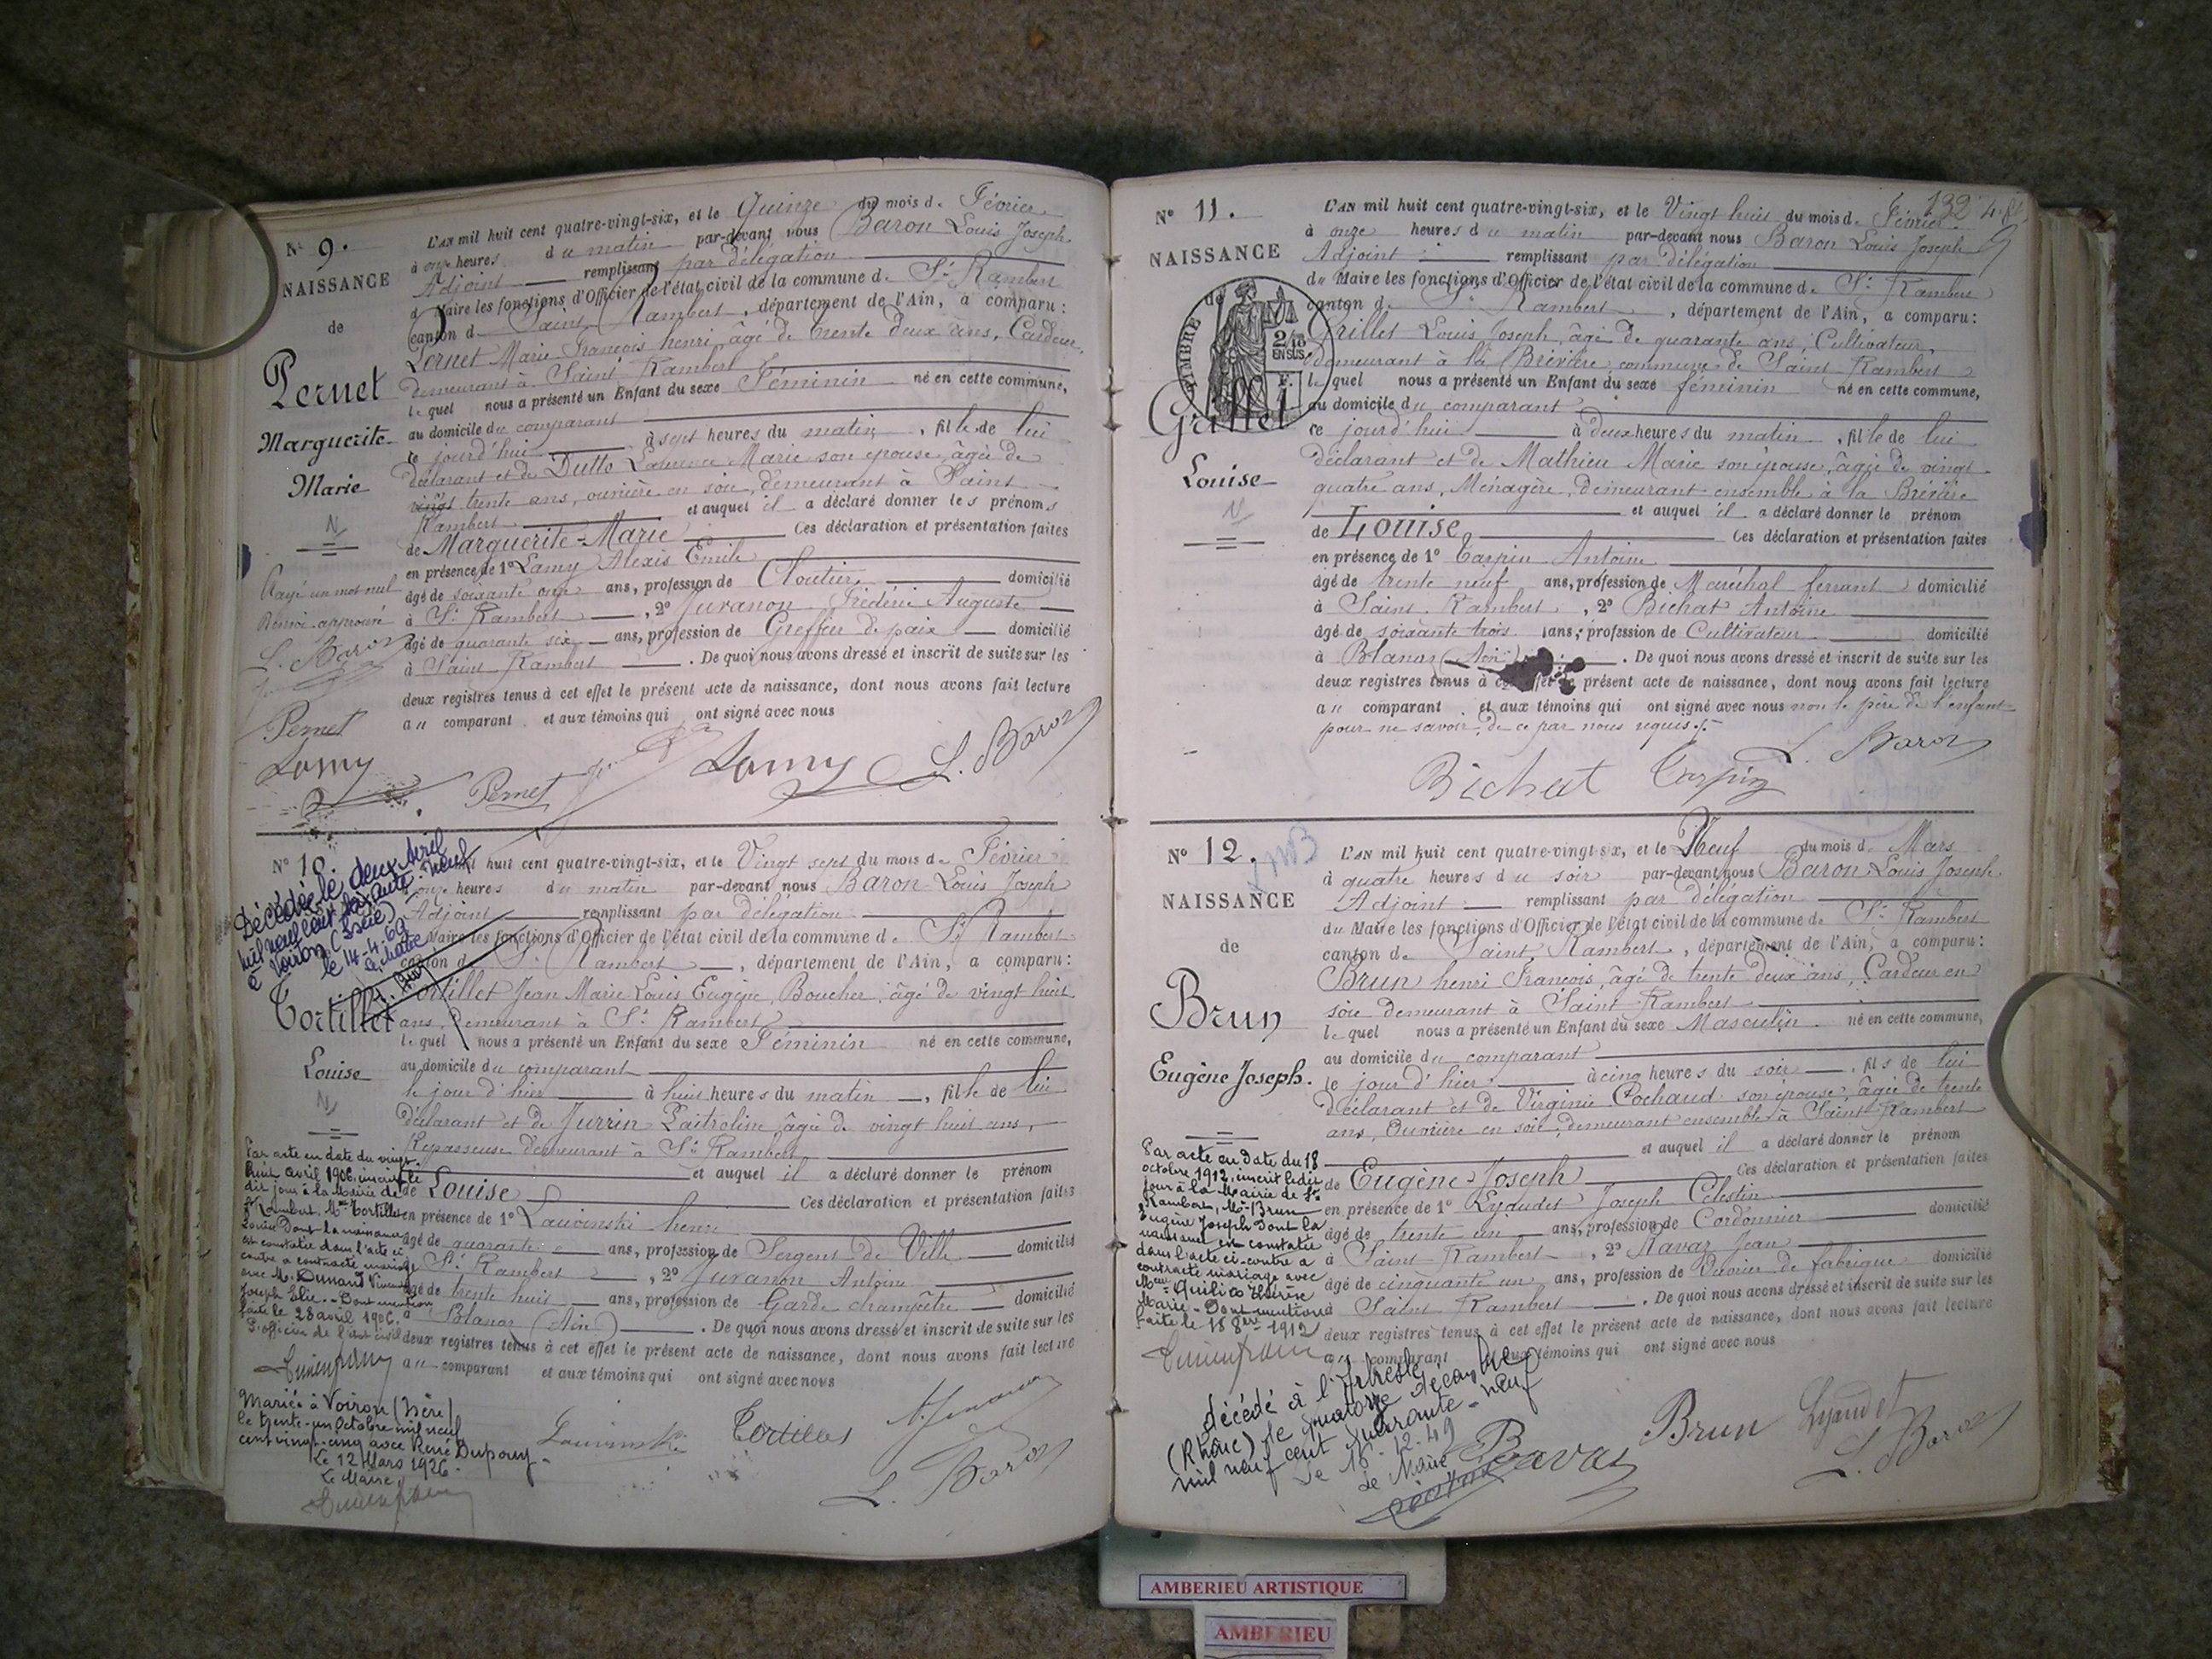 N° 9.
NAISSANCE
de
Pernet
Marguerite
Marie
L'AN mil huit cent quatre-vingt-six, et le Quinze du mois de Février
à onze heures du matin par-devant nous Baron Louis Joseph
Adjoint remplissant par délégation
d Maire les fonctions d'Officier de l'état civil de la commune de St Rambert
canton d Saint Rambert, département de l'Ain, a comparu:
Pernet Marie François henri, âgé de trente deux ans, Cardeur,
demeurant à Saint Rambert
lequel nous a présenté un Enfant du sexe Féminin né en cette commune,
au domicile du comparant
ce jourd'hui à sept heures du matin, fille de lui
déclarant et de Dutto Laurence Marie son épouse, âgée de
vingt trente ans, ouvrière en soie, demeurant à Saint
Rambert et auquel il a déclaré donner les prénoms
de Marguerite-Marie Ces déclaration et présentation faites
en présence de 1° Lamy Alexis Emile
âgé de soixante onze ans, profession de Cloutier, domicilié
à St Rambert, 2° Juvanon Frédéric Auguste
âgé de quarante six ans, profession de Greffier de paix domicilié
à Saint Rambert. De quoi nous avons dressé et inscrit de suite sur les
deux registres tenus à cet effet le présent acte de naissance, dont nous avons fait lecture
au comparant et aux témoins qui ont signé avec nous
Rayé un mot nul
Renvoi approuvé
L. Baron
Pernet
Lamy
Pernet Lamy L. Baron
N° 10.
Décédée le deux Avril
mil neuf cent soixante-neuf
à Voiron (Isère)
le 14-4-69
Le Maire
Tortillet
Louise
mil huit cent quatre-vingt-six, et le Vingt sept du mois de Février
onze heures du matin par-devant nous Baron Louis Joseph
Adjoint remplissant par délégation
Maire les fonctions d'Officier de l'état civil de la commune de St Rambert
canton d St Rambert, département de l'Ain, a comparu:
Tortillet Jean Marie Louis Eugène, Boucher, âgé de vingt huit
ans, demeurant à St Rambert
lequel nous a présenté un Enfant du sexe Féminin né en cette commune,
au domicile du comparant
le jour d'hier à huit heures du matin, fille de lui
déclarant et de Jurrin Laitroline, âgée de vingt huit ans,
Repasseuse demeurant à St Rambert
et auquel il a déclaré donner le prénom
de Louise Ces déclaration et présentation faites
en présence de 1° Lawinski henri
âgé de quarante ans, profession de Sergent de Ville domicilié
St Rambert, 2° Juvanon Antoine
âgé de trente huit ans, profession de Garde champêtre domicilié
à Blanas (Ain). De quoi nous avons dressé et inscrit de suite sur les
deux registres tenus à cet effet le présent acte de naissance, dont nous avons fait lecture
au comparant et aux témoins qui ont signé avec nous
Par acte en date du vingt
huit avril 1906, inscrit le
dit jour à la Mairie de
St Rambert, Melle Tortillet
Louise dont la naissance
est constatée dans l'acte ci-
contre a contracté mariage
avec M. Dunand Vincent
Joseph Elie. - Dont mention
faite le 28 avril 1906.
L'officier de l'état civil
Mariée à Voiron (Isère)
le trente-un Octobre mil neuf
cent vingt-cinq avec René Dupouy.
Le 12 Mars 1926.
Le Maire,
Lawinski Tortillet
L. Baron
N° 11.
NAISSANCE
de
TIMBRE
2/10
EN SUS
Grillet
Louise
132 48
L'AN mil huit cent quatre-vingt-six, et le Vingt huit du mois de Février
à onze heures du matin par-devant nous Baron Louis Joseph
Adjoint remplissant par délégation
du Maire les fonctions d'Officier de l'état civil de la commune de St Rambert
canton d St Rambert, département de l'Ain, a comparu:
Grillet Louis Joseph, âgé de quarante ans, Cultivateur,
demeurant à la Brévière, commune de Saint Rambert
lequel nous a présenté un Enfant du sexe féminin né en cette commune,
au domicile du comparant
ce jourd'hui à deux heures du matin, fille de lui
déclarant et de Mathieu Marie son épouse, âgée de vingt
quatre ans, Ménagère, demeurant ensemble à la Brévière
et auquel il a déclaré donner le prénom
de Louise Ces déclaration et présentation faites
en présence de 1° Carpin Antoine
âgé de trente neuf ans, profession de Maréchal ferrant domicilié
à Saint Rambert, 2° Bichat Antoine
âgé de soixante trois ans, profession de Cultivateur domicilié
à Blanas (Ain). De quoi nous avons dressé et inscrit de suite sur les
deux registres tenus à cet effet le présent acte de naissance, dont nous avons fait lecture
au comparant et aux témoins qui ont signé avec nous non le père de l'enfant
pour ne savoir, de ce par nous requis.
L. Baron
Bichat Carpin
N° 12.
NAISSANCE
de
Brun
Eugène Joseph.
L'AN mil huit cent quatre-vingt-six, et le Neuf du mois d Mars
à quatre heures du soir par-devant nous Baron Louis Joseph
Adjoint remplissant par délégation
du Maire les fonctions d'Officier de l'état civil de la commune de St Rambert
canton de Saint Rambert, département de l'Ain, a comparu:
Brun henri François, âgé de trente deux ans, Cardeur en
soie demeurant à Saint Rambert
lequel nous a présenté un Enfant du sexe Masculin né en cette commune,
au domicile du comparant
le jour d'hier à cinq heures du soir, fils de lui
déclarant et de Virginie Cochaud son épouse, âgée de trente
ans, Ouvrière en soie, demeurant ensemble à Saint Rambert
et auquel il a déclaré donner le prénom
de Eugène Joseph Ces déclaration et présentation faites
en présence de 1° Lyaudet Joseph Célestin
âgé de trente un ans, profession de Cordonnier domicilié
à Saint Rambert, 2° Ravaz Jean
âgé de cinquante un ans, profession de Ouvrier de fabrique domicilié
à Saint Rambert. De quoi nous avons dressé et inscrit de suite sur les
deux registres tenus à cet effet le présent acte de naissance, dont nous avons fait lecture
au comparant et aux témoins qui ont signé avec nous
Par acte en date du 18
octobre 1912, inscrit le dit
jour à la Mairie de St
Rambert, Mr Brun
Eugène Joseph dont la
naissance est constatée
dans l'acte ci-contre a
contracté mariage avec
Thérèse
Marie. Dont mention
faite le 18 8bre 1912
Décédé à l'Arbresle
(Rhône) le quatorze décembre
mil neuf cent quarante-neuf
Le 16-12-49
Le Maire
Ravaz
Brun Lyaudet
L. Baron
AMBERIEU ARTISTIQUE
AMBERIEU